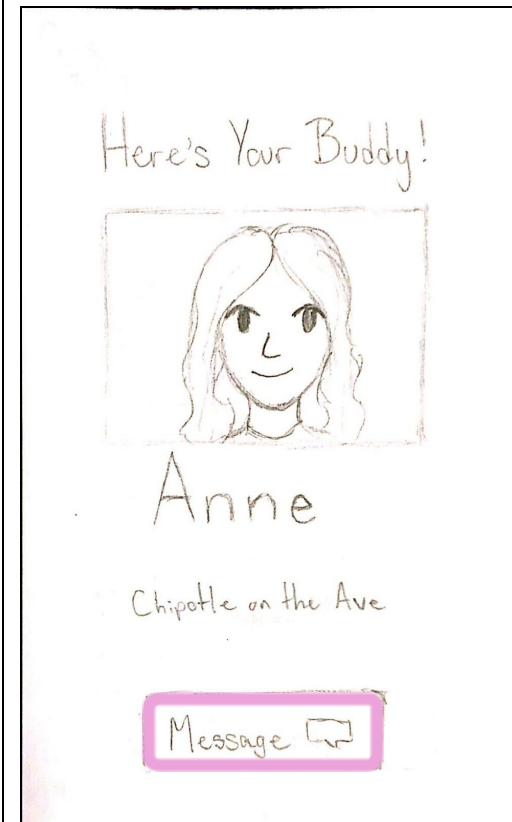 Here's Your Buddy!
Anne
Chipotle on the Ave
Message